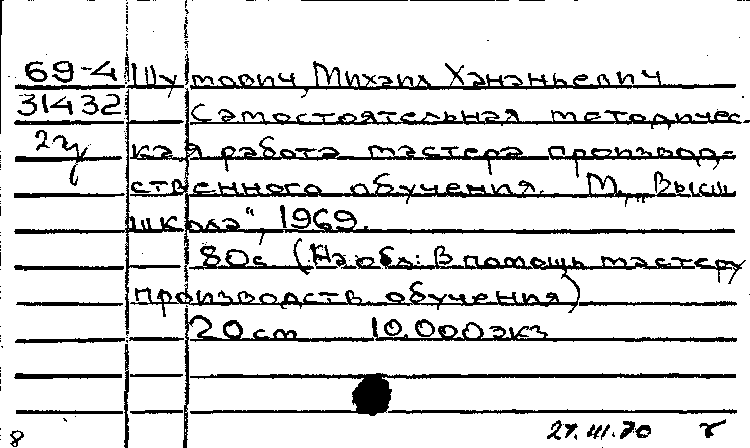 69-4 Шутович, Михаил Хананьевич
31432 Самостоятельная методичес-
2у кая работа мастера производ-
ственного обучения. М., „Высш
школа", 1969.
80с (На обл: В помощь мастеру
производств обучения)
20 cm 10.000 экз
8 27.III.70